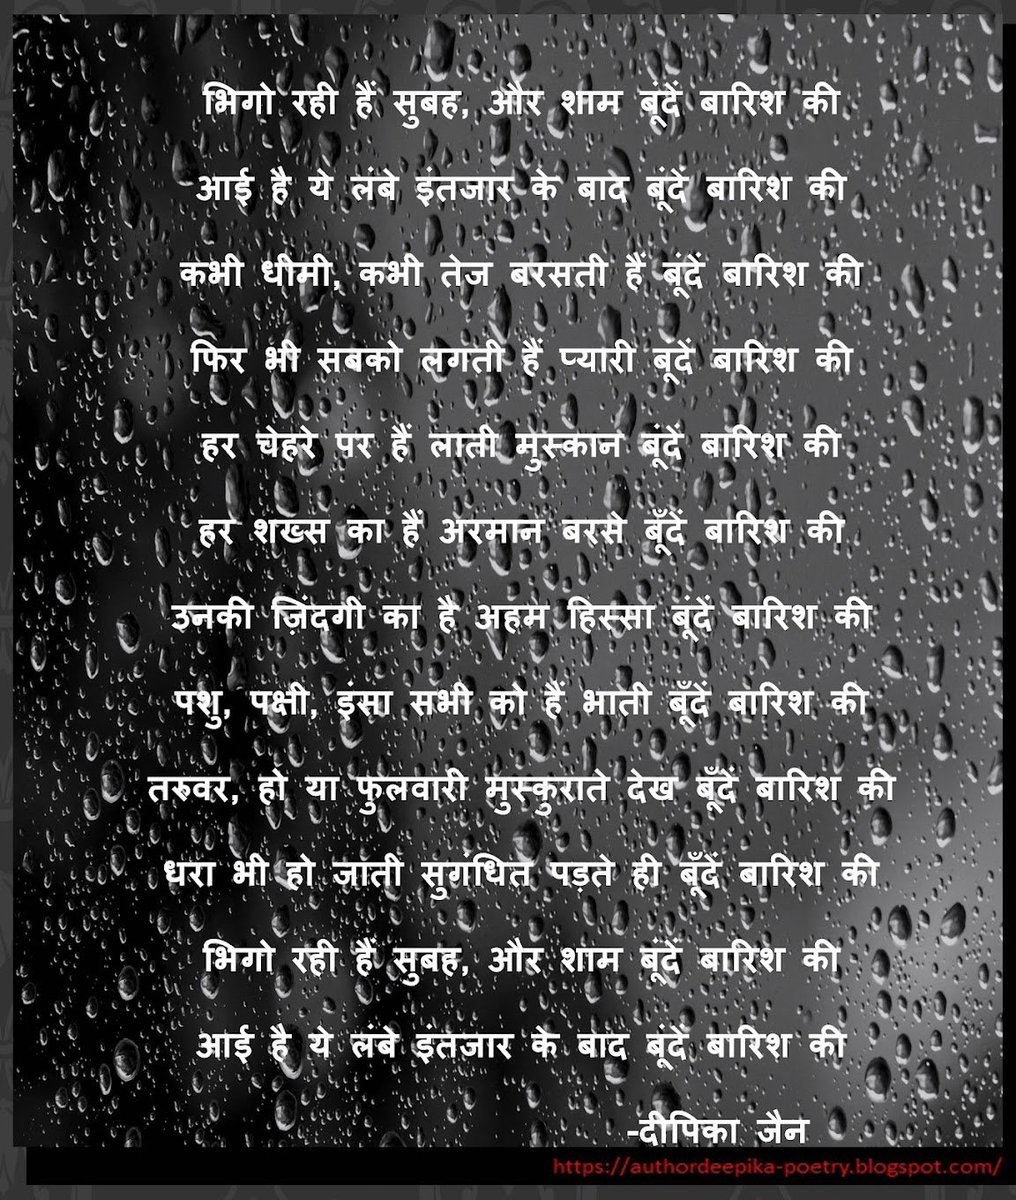 भिगो रही हैं सुबह, और शाम बूंदें बारिश की
आई है ये लंबे इंतजार के बाद बूंदें बारिश की
कभी धीमी, कभी तेज बरसती हैं बूंदें बारिश की
फिर भी सबको लगती हैं प्यारी बूदें बारिश की
हर चेहरे पर हैं लाती मुस्कान बूंदें बारिश की
हर शख्स का हैं अरमान बरसे बूँदें बारिश की
उनकी ज़िंदगी का है अहम हिस्सा बूंदें बारिश की
पशु, पक्षी, इंसा सभी को हैं भाती बूँदें बारिश की
तरुवर, हो या फुलवारी मुस्कुराते देख बूँदें बारिश की
धरा भी हो जाती सुगंधित पड़ते ही बूँदें बारिश की
भिगो रही हैं सुबह, और शाम बूंदें बारिश की
आई है ये लंबे इंतजार के बाद बूंदें बारिश की
-दीपिका जैन
https://authordeepika-poetry.blogspot.com/